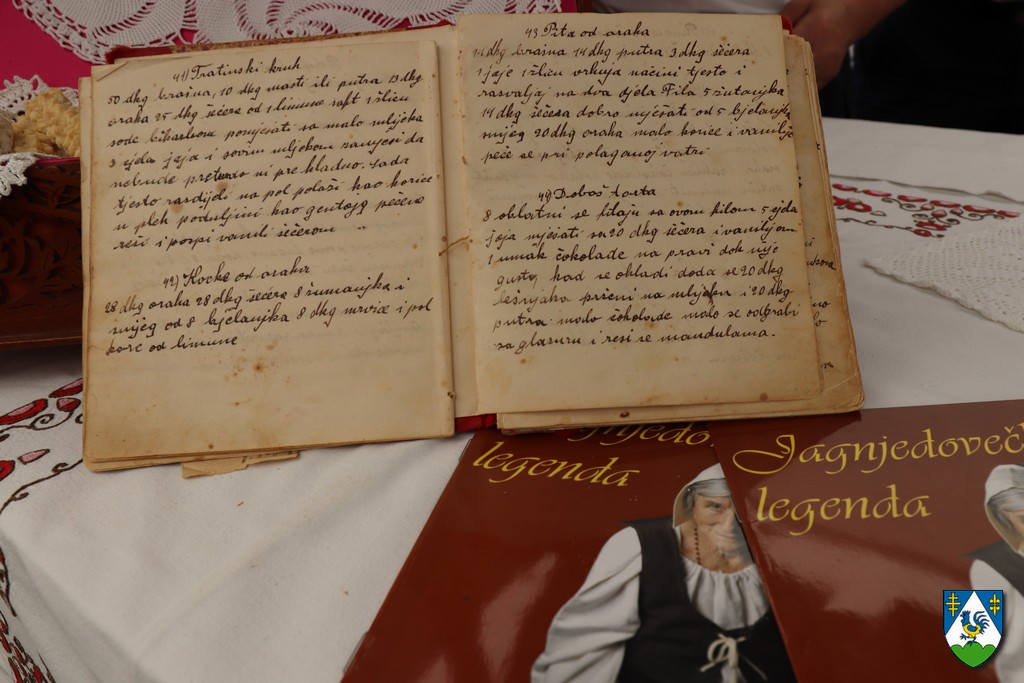 41) Tratinski kruh
50 dkg brašna, 10 dkg masti ili putra 13 dkg
oraha 25 dkg šećera od 1 limuna saft 1 žlicu
sode bikarbone pomješati sa malo mljeka
3 cjela jaja i sovim mljekom zamjesi da
nebude pretvrdo ni pre hladno. Sada
tjesto razdijeli na pol položi kao korice
u pleh poduljini kao pečeno
reži i pospi vanili šećerom "
42) Kocke od oraha
28 dkg oraha 28 dkg šećera 8 žumanjka i
snijeg od 8 bjelanjka 8 dkg mrvice i pol
kore od limune
43 Pita od oraha
14 dkg brašna 14 dkg putra 3 dkg šećera
1 jaje 1 žlicu vrhnja načini tjesto i
razvaljaj na dva djela Fila 5 žutanjka
14 dkg šećera dobro mješati od 5 bjelanjka
snijeg 20 dkg oraha malo korice i vanilje
peče se pri polaganoj vatri
44) Doboš torta
8 oblatni se filaju sa ovom filom 5 cjela
jaja mješati sa 20 dkg šećera i vanilijom
1 čokolade na pari dok nije
gusto, kad se ohladi doda se 20 dkg
lešnjaka prženi na mljeku i 20 dkg
putra malo čokolade malo se odgrabi
za glazuru i resi se mandulama.
legenda
Jagnjedovečk
legenda